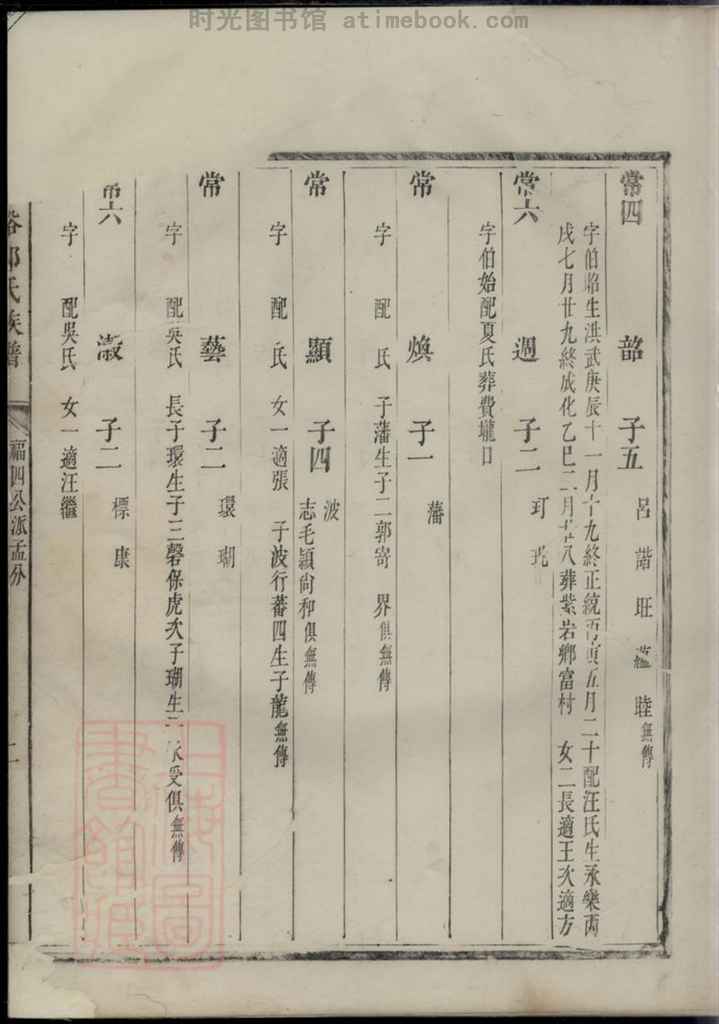 时光图书馆 atimebook.com
常四 韶 子五 呂 諧 旺 蘊 睦無傳
字伯焰生洪武庚辰十一月十九終正統庚寅五月二十配汪氏生永樂丙
戌七月廿九終成化乙巳二月廿八葬紫岩鄉富村 女二長適王次適方
常六 過 子二 玎 玭
字伯始配夏氏葬費壠口
常 煥 子一 藩
字 配 氏 子藩生子二郭寄 界俱無傳
常 顯 子四 波 志毛頴尙和俱無傳
字 配 氏 女一適張 子波行蕃四生子龍無傳
常 藝 子二 環 瑚
字 配吳氏 長子環生子三磬保虎次子瑚生子 永受俱無傳
常六 淑 子二 標 康
字 配吳氏 女一適汪繼
氏族譜
福四公派孟分